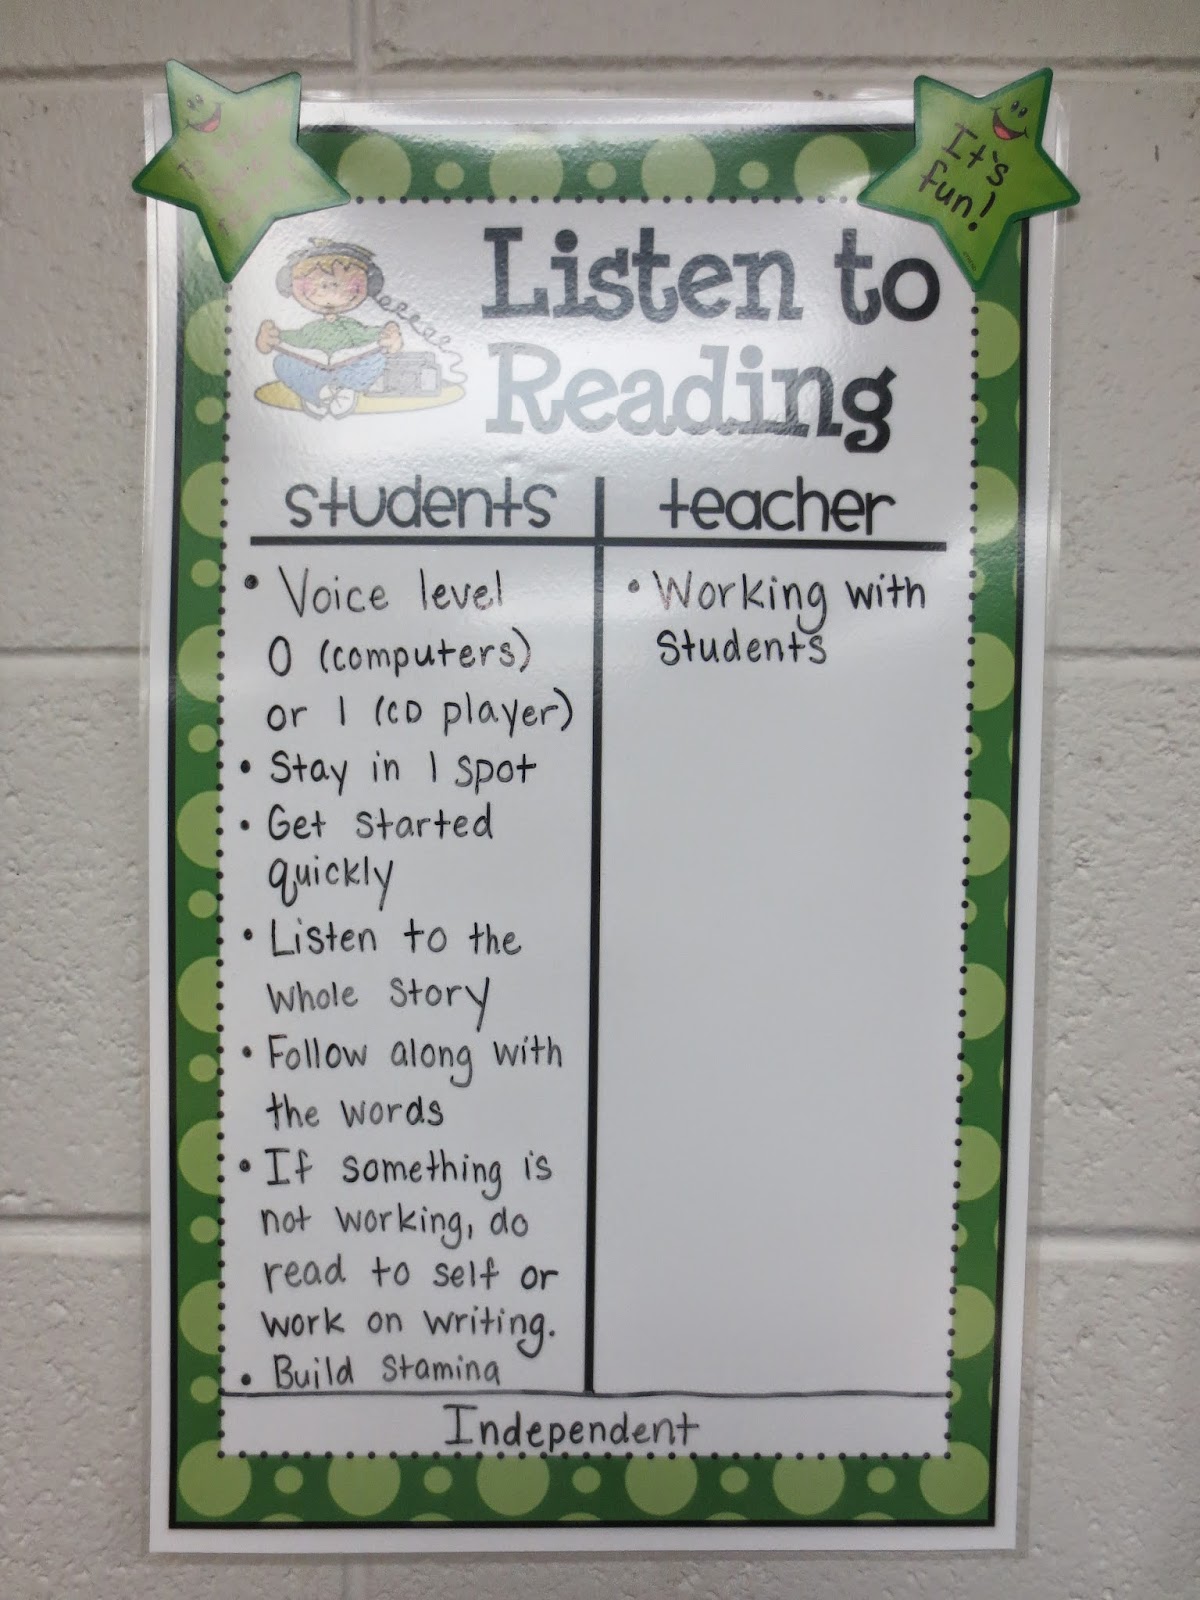 It's
fun!
Listen to
Reading
students
teacher
• Voice level
0 (computers)
or 1 (CD player)
• Stay in 1 spot
• Get started
quickly
• Listen to the
whole story
• Follow along with
the words
• If something is
not working, do
read to self or
work on writing.
• Build Stamina
• Working with
Students
Independent